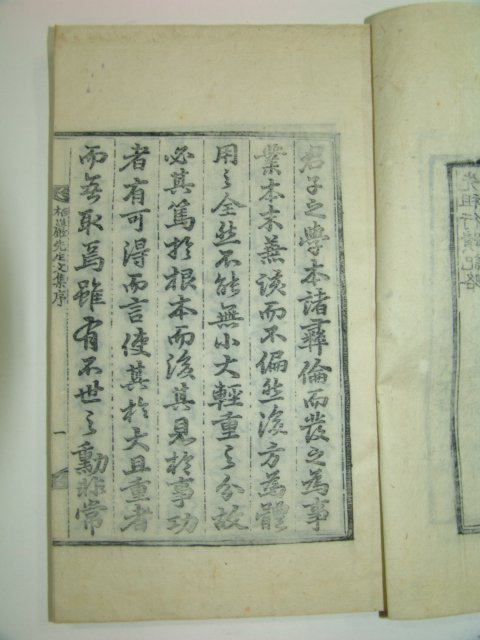 君子之學本諸彛倫而發之爲事
業本末兼該而不偏然後方爲體
用之全然不能無小大輕重之分故
必其篤於根本而後其見於事功
者有可得而言使其於大且重者
而無取焉雖有不世之勳非常
先生文集序
一
先祖行蹟記略